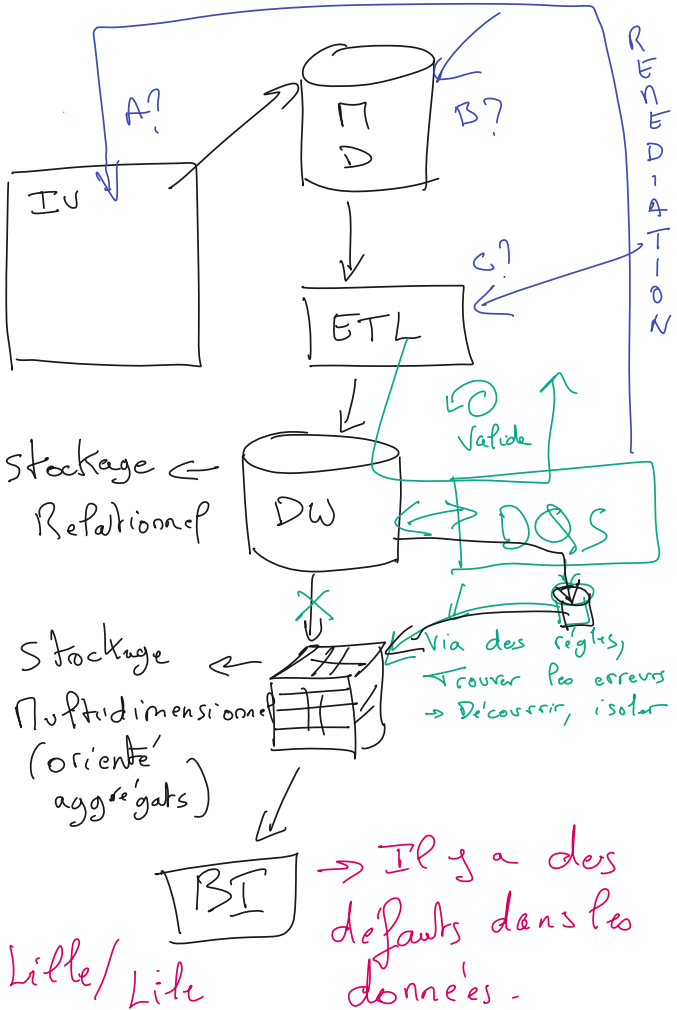 A?
B?
R
E
M
E
D
I
A
T
I
O
N
IV
M
D
C?
ETL
Valide
Stockage
Relationnel
DW
DQS
Via des règles,
Trouver les erreurs
→ Découvrir, isoler
Stockage
Multidimensionnel
(orienté
aggrégats)
BI
→ Il y a des
défauts dans les
données.
Lille/Lile